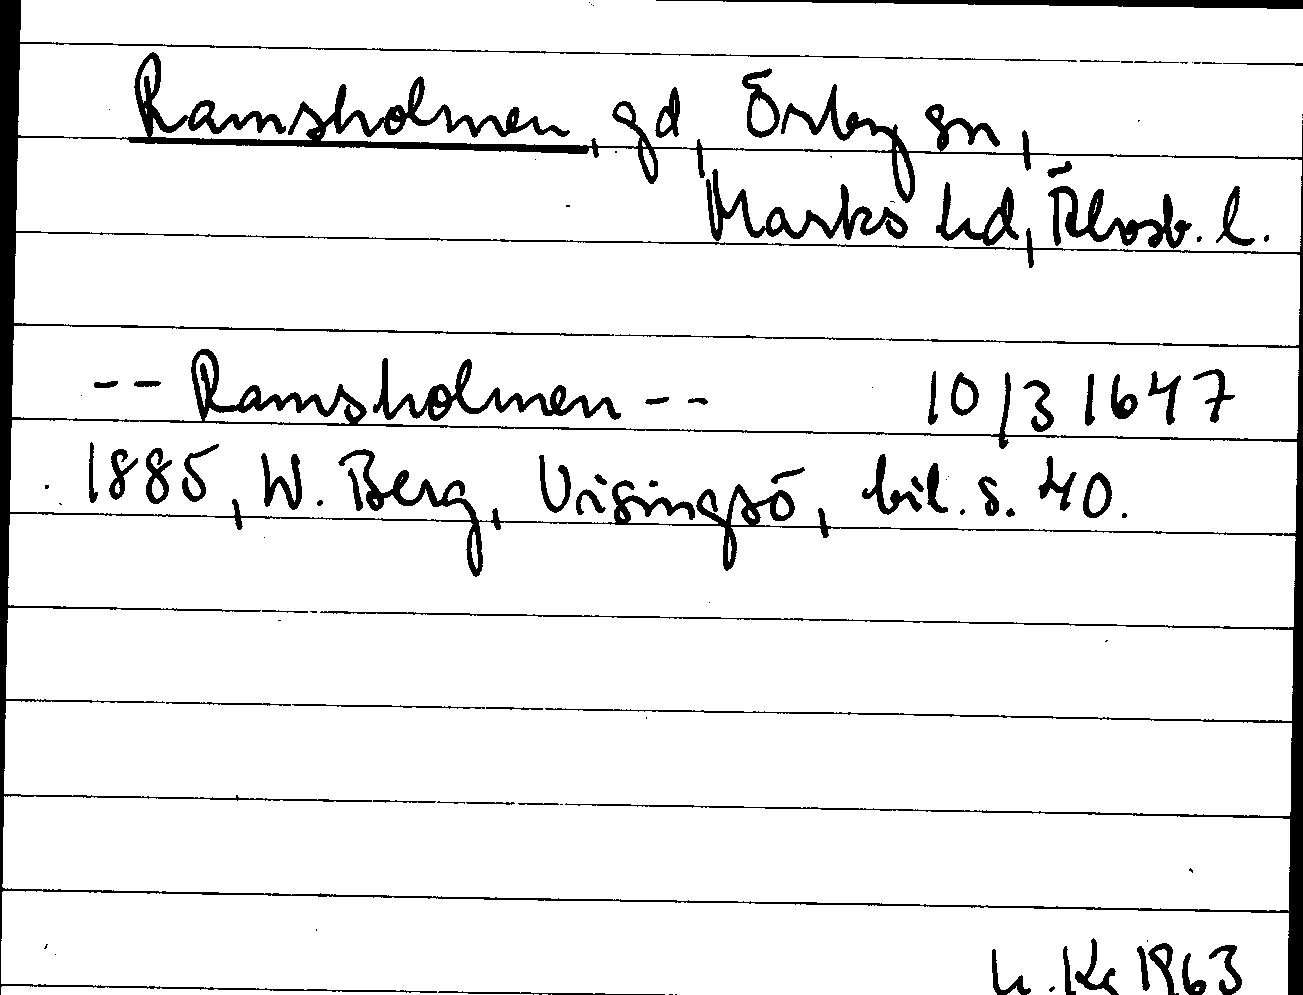 Ramsholmen, gd, Örby sn,
Marks hd, Älvsb. l.
-- Ramsholmen -- 10/3 1647
1885, W. Berg, Visingsö, bil. s. 40.
1963